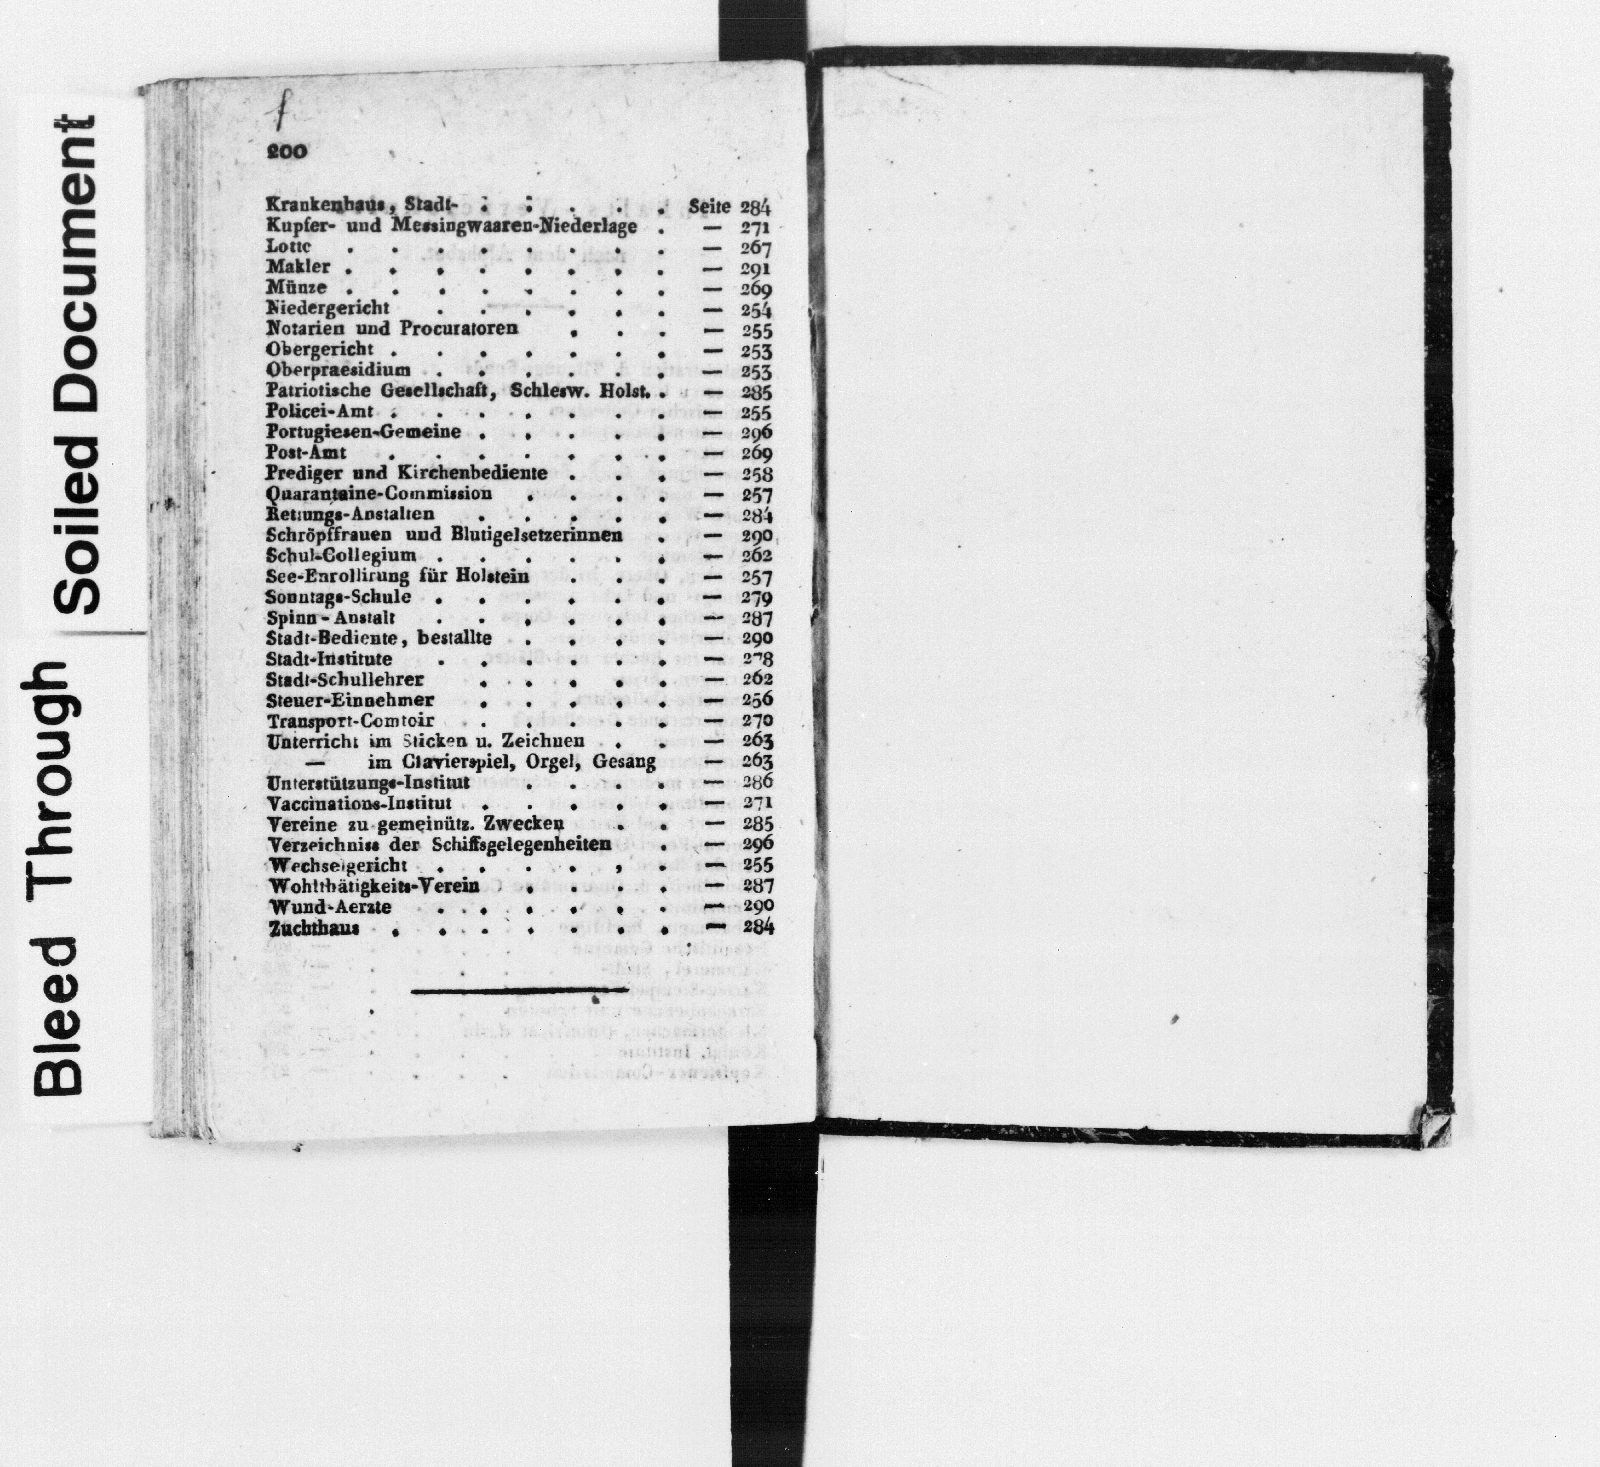 Soiled Document
Bleed Through
f
200
Krankenhaus, Stadt- . . . . . Seite 284
Kupfer- und Messingwaaren-Niederlage . — 271
Lotto . . . . . . . . — 267
Makler . . . . . . . . — 291
Münze . . . . . . . . — 269
Niedergericht . . . . . . — 254
Notarien und Procuratoren . . . — 255
Obergericht . . . . . . . — 253
Oberpraesidium . . . . . . — 253
Patriotische Gesellschaft, Schlesw. Holst. . — 285
Policei-Amt . . . . . . . — 255
Portugiesen-Gemeine . . . . . — 296
Post-Amt . . . . . . . — 269
Prediger und Kirchenbediente . . . — 258
Quarantaine-Commission . . . . — 257
Rettungs-Anstalten . . . . . — 284
Schröpffrauen und Blutigelsetzerinnen . — 290
Schul-Collegium . . . . . . — 262
See-Enrollirung für Holstein . . . — 257
Sonntags-Schule . . . . . . — 279
Spinn-Anstalt . . . . . . — 287
Stadt-Bediente, bestallte . . . . — 290
Stadt-Institute . . . . . . — 278
Stadt-Schullehrer . . . . . — 262
Steuer-Einnehmer . . . . . — 256
Transport-Comtoir . . . . . — 270
Unterricht im Sticken u. Zeichnen . . — 263
— im Clavierspiel, Orgel, Gesang — 263
Unterstützungs-Institut . . . . — 286
Vaccinations-Institut . . . . . — 271
Vereine zu gemeinütz. Zwecken . . — 285
Verzeichniss der Schiffsgelegenheiten . — 296
Wechselgericht . . . . , . — 255
Wohlthätigkeits-Verein . . . . — 287
Wund-Aerzte . . . . . . — 290
Zuchthaus . . . . . . . — 284